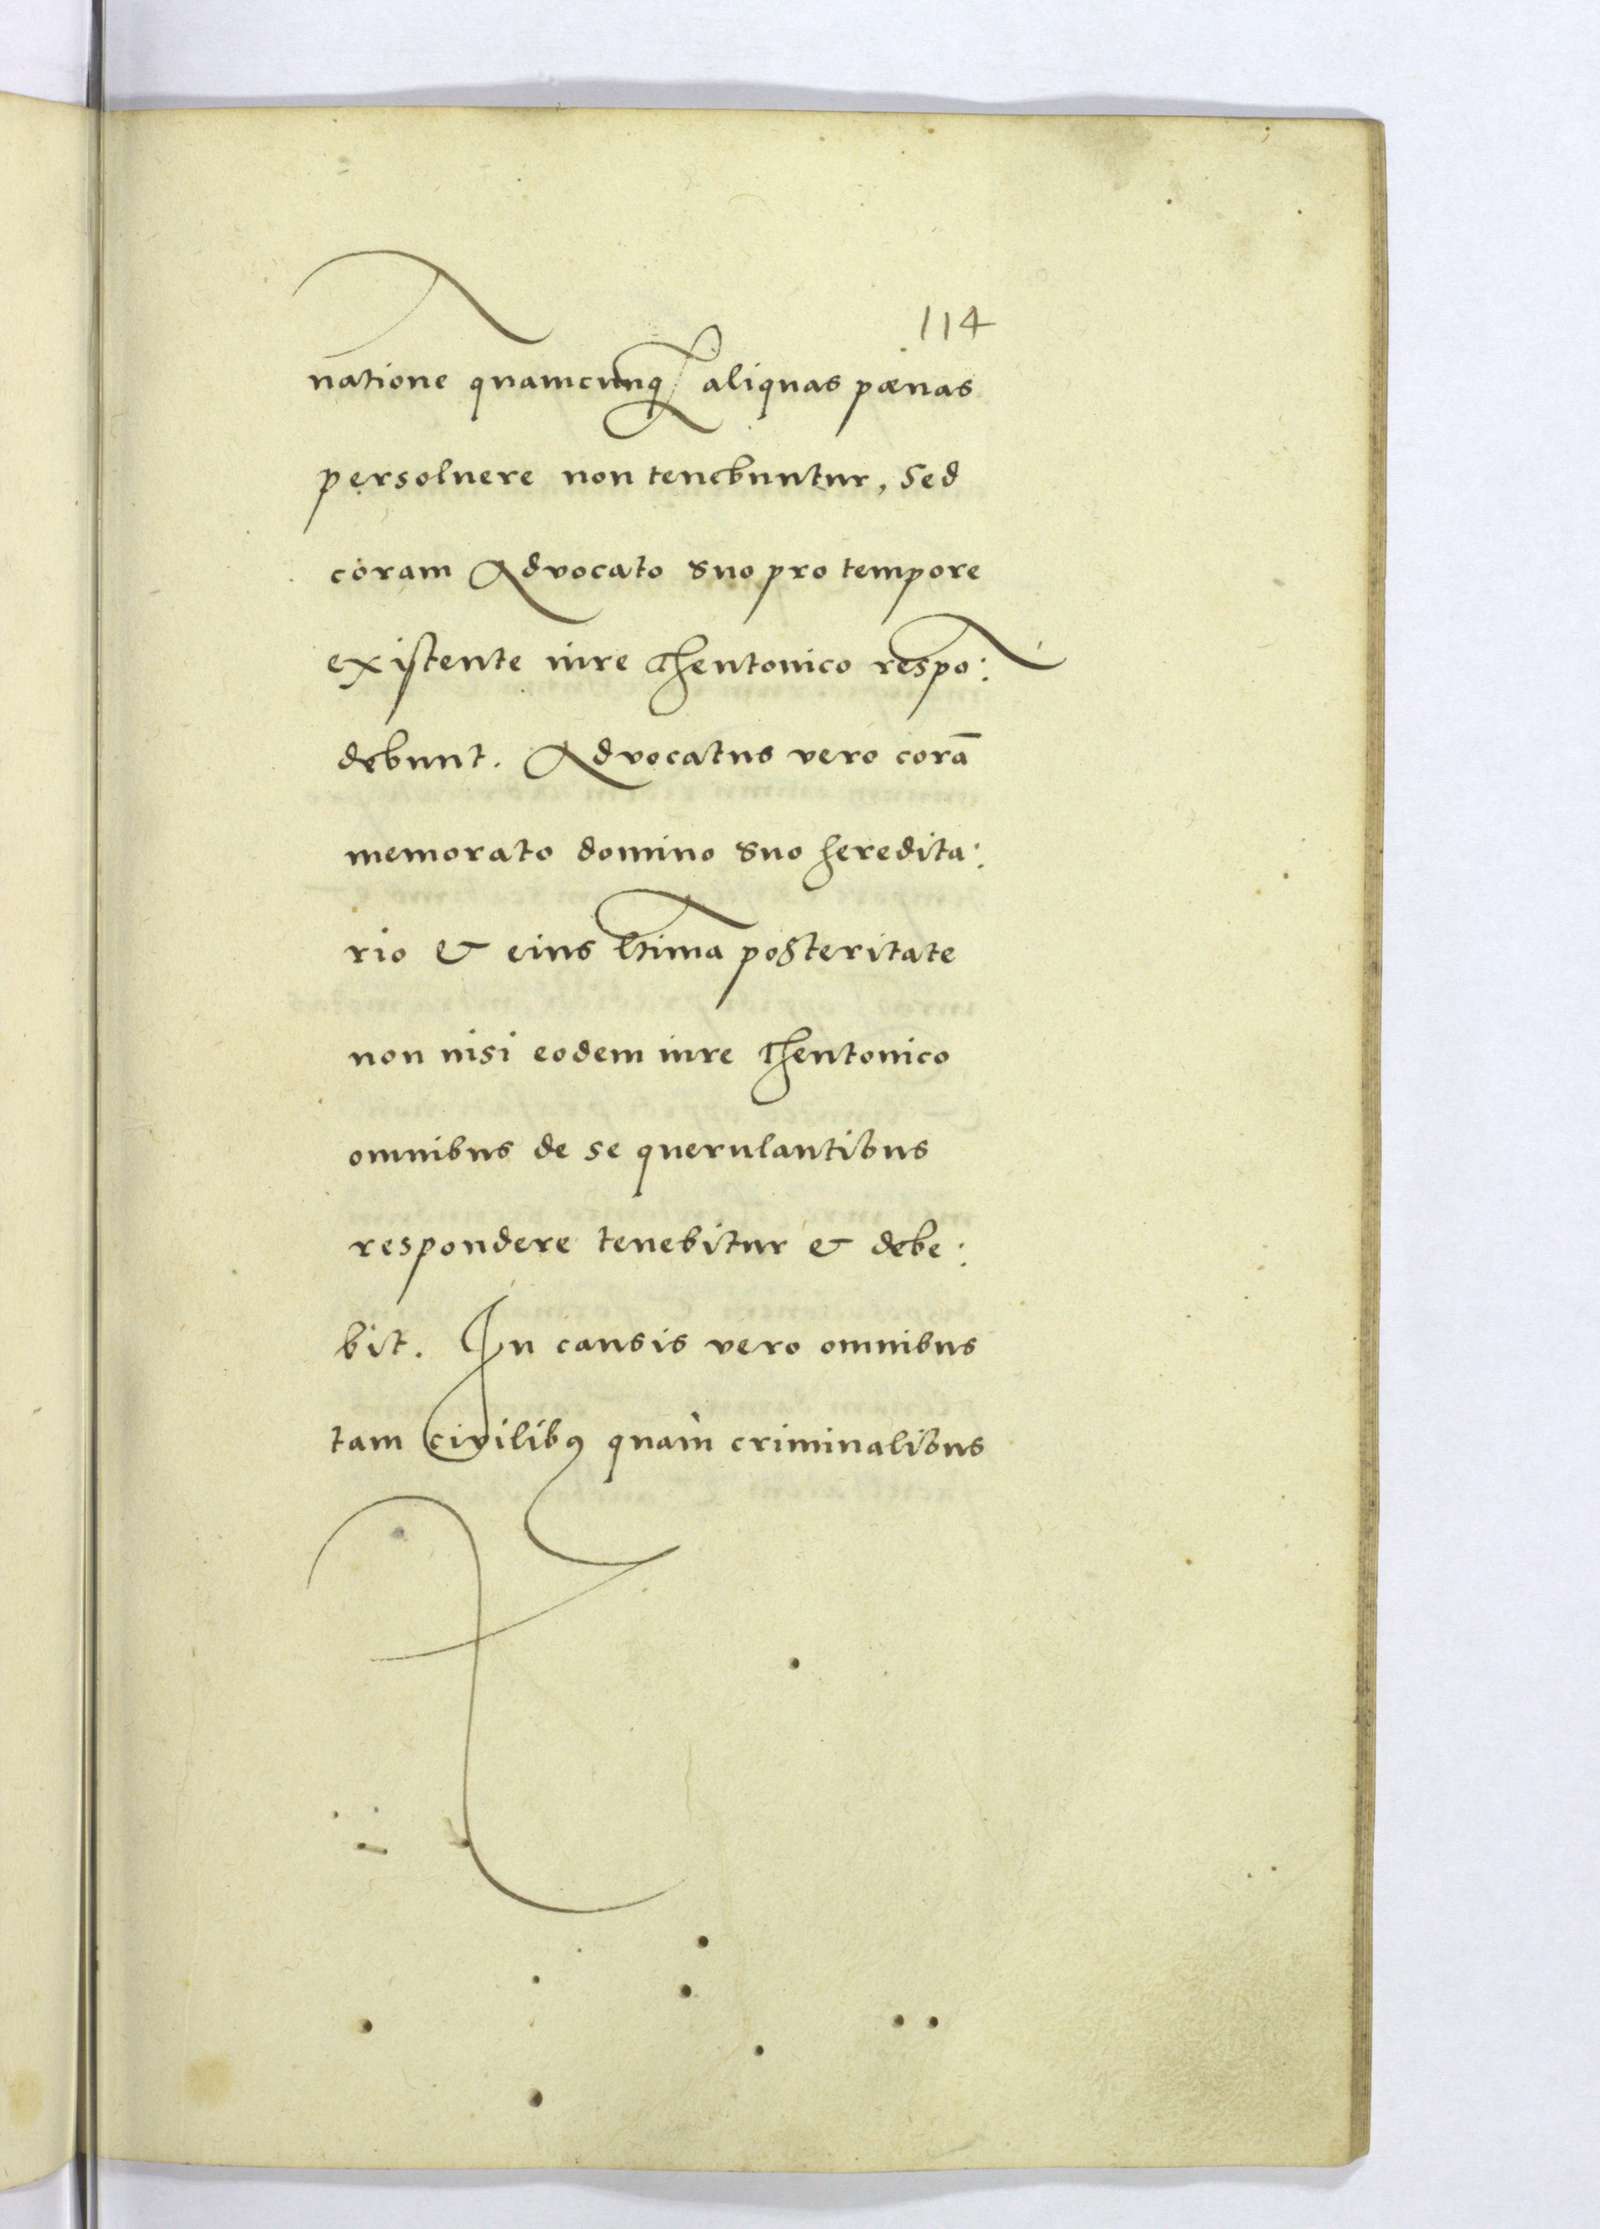 114
natione quamcunq aliquas pænas
persoluere non tenebuntur, Sed
coram Advocato suo pro tempore
existente iure Theutonico respo:
debunt. Advocatus vero corā
memorato domino suo heredita:
rio & eius ltima posteritate
non nisi eodem iure Theutonico
omnibus de se querulantibus
respondere tenebitur & debe:
bit. In causis vero omnibus
tam civilibꝰ quàm criminalibus